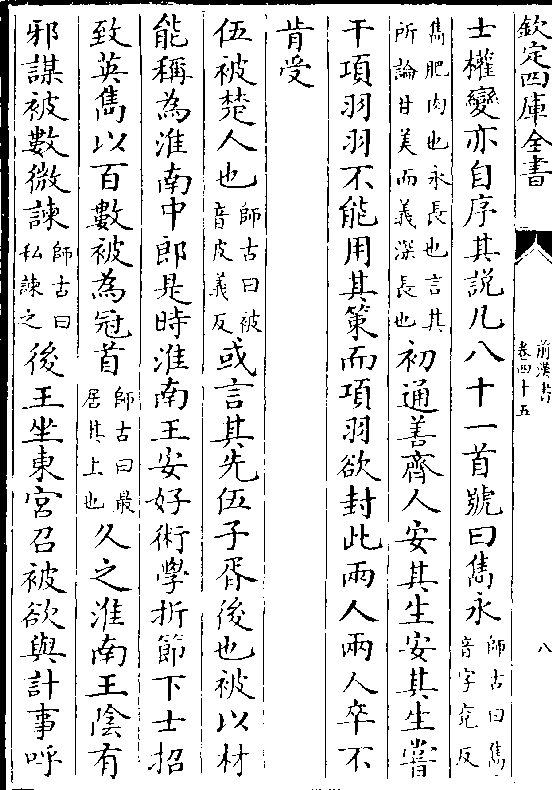 欽定四庫全書
前漢書
卷四十五
八
士權變亦自序其説凡八十一首號曰雋永師古曰雋音字兖反
雋肥肉也永長也言其所論甘美而義深長也初通善齊人安其生安其生嘗
干項羽羽不能用其策而項羽欲封此兩人兩人卒不
肯受
伍被楚人也師古曰被音皮義反或言其先伍子胥後也被以材
能稱為淮南中郎是時淮南王安好術學折節下士招
致英雋以百數被為冠首師古曰最居其上也久之淮南王陰有
邪謀被數微諫師古曰私諫之後王坐東宮召被欲與計事呼